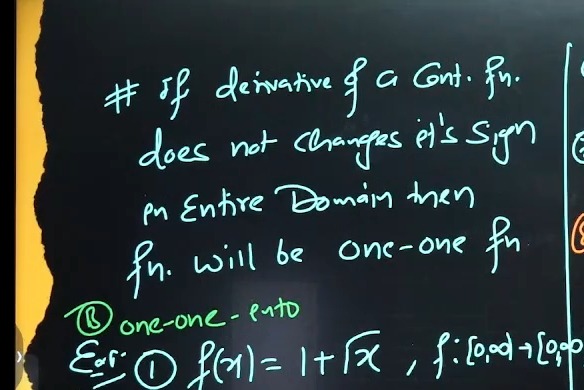 # If derivative of a Cont. fn.
does not changes it's Sign
in Entire Domain then
fn. will be one-one fn
(B) one-one-into
Ex:- ① f(x) = 1+√x , f:[0,∞) → [0,∞